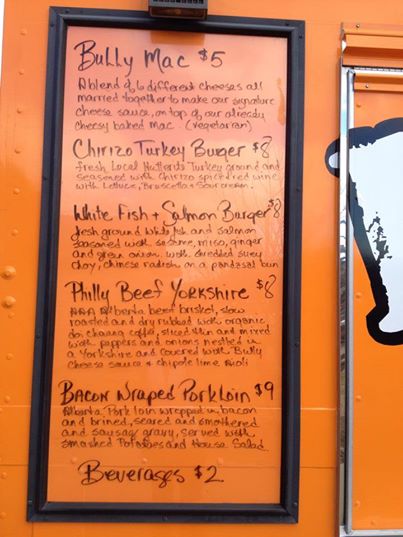 Bully Mac $5
A blend of 6 different cheeses all
married together to make our signature
cheese sauce, on top of our already
cheesy baked mac. (vegetarian)
Chirizo Turkey Burger $8
fresh Local Nutterds Turkey ground and
seasoned with Chirizo spiced red wine
with Lettuce, Bruscetta + Sour cream.
White Fish + Salmon Burger $8
fresh ground White fish and salmon
seasoned with sesame, miso, ginger
and green onion. with shredded suey
choy, chinese radish on a pandasal bun
Philly Beef Yorkshire $8
AAA Alberta beef brisket, slow
roasted and dry rubbed with organic
doi chaang coffee, sliced thin and mixed
with peppers and onions nestled in
a Yorkshire and covered with Bully
cheese sauce & chipotle lime Aioli
Bacon Wraped Pork Loin $9
Alberta Pork loin wrapped in bacon
and brined, seared and smothered
and sausage gravy, served with
smashed Potatoes and House Salad
Beverages $2